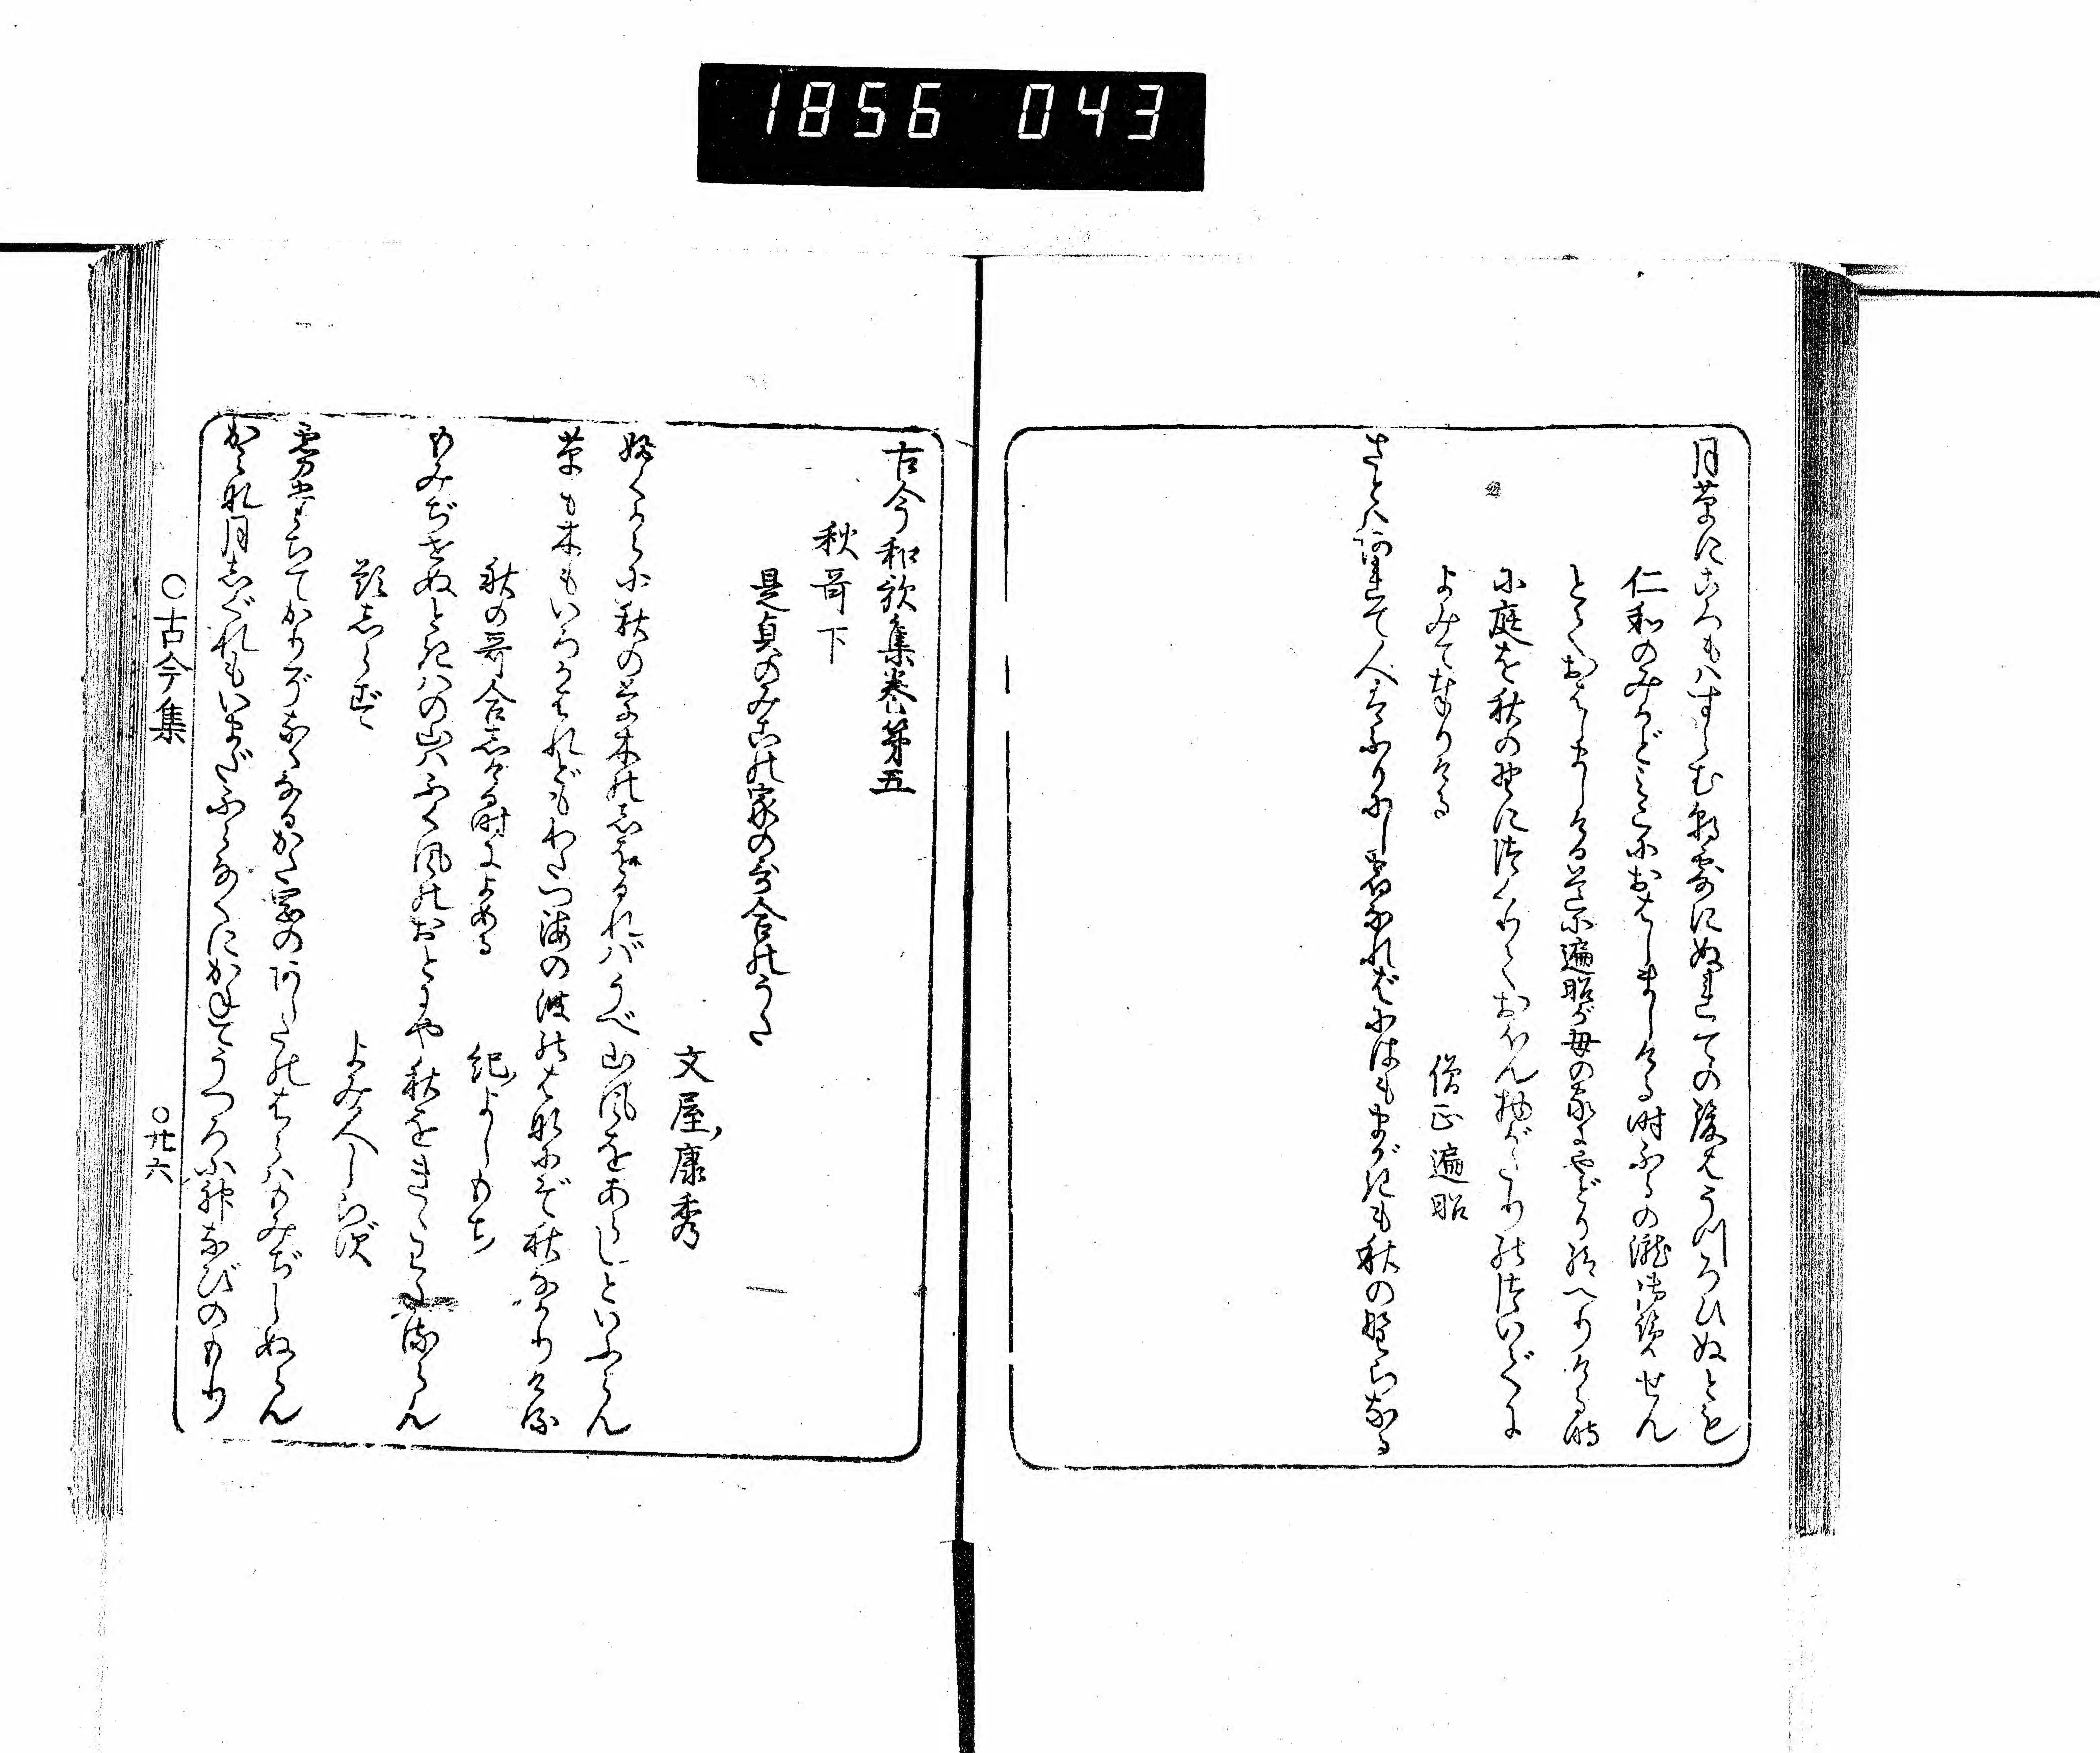 1856 043
月草に衣はすらむ朝露にぬれての後はうつろひぬとも
仁和のみかどみこにおはしましける時ふるの滝御覧せん
とておはしましける道に遍昭が母の家にやどり給へりける時
に庭を秋の野につくりておほん物がたりのついでに
よみて奉りける
僧正遍昭
さとはあれて人はふりにし宿なれば庭もまがきも秋の野らなる
古今和歌集巻第五
秋哥下
是貞のみこの家の哥合のうた
文屋康秀
吹からに秋の草木のしをるればうべ山風をあらしといふらん
草も木もいろかはれどもわたつ海の波の花にぞ秋なかりける
秋の哥合しける時によめる
紀よしもち
もみぢせぬときはの山はふく風のおとにや秋をきゝわたるらん
題しらず
よみ人しらず
霧立てかりぞなくなるかた岡のあしたのはらはもみぢしぬらん
かみな月しぐれもいまだふらなくにかねてうつろふ神なびのもり
〇古今集
〇廿六